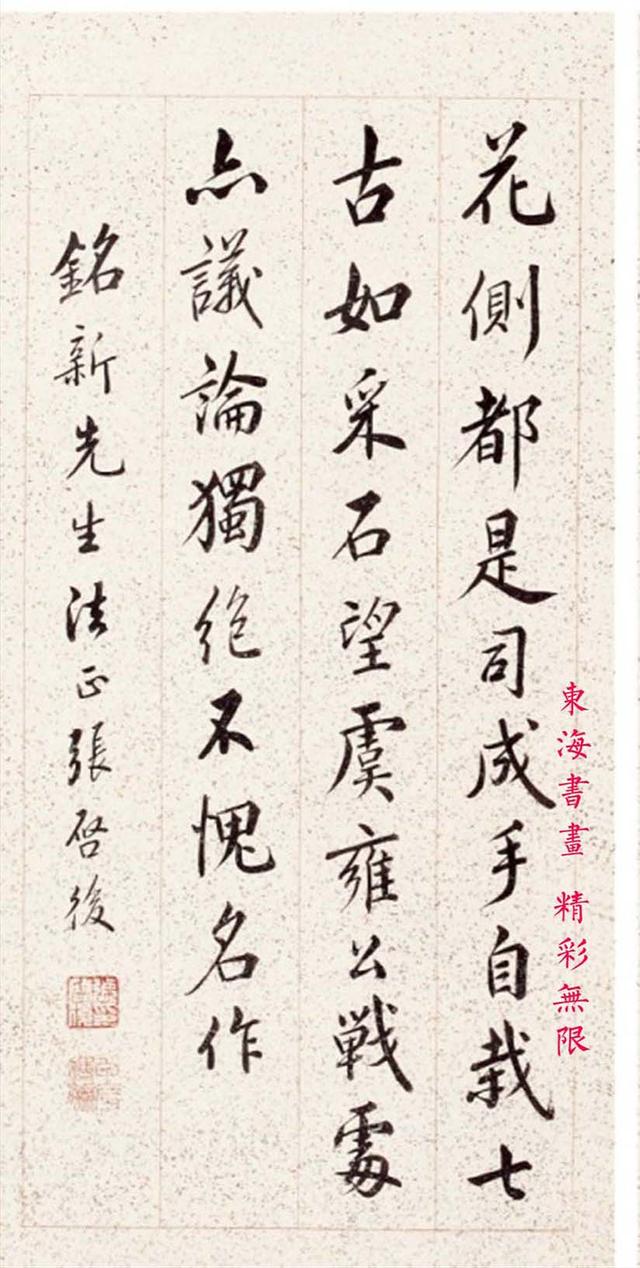 花側都是司成手自栽七
古如采石望虞雍公戰處
亦議論獨絕不愧名作
銘新先生法正張啓後
東海書畫 精彩無限